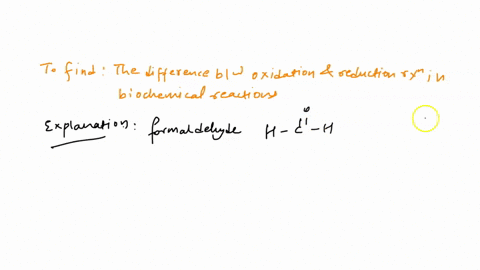 To find: The difference b/w oxidation & reduction rxⁿ in
biochemical reactions
Explanation: formaldehyde H-C-H
O